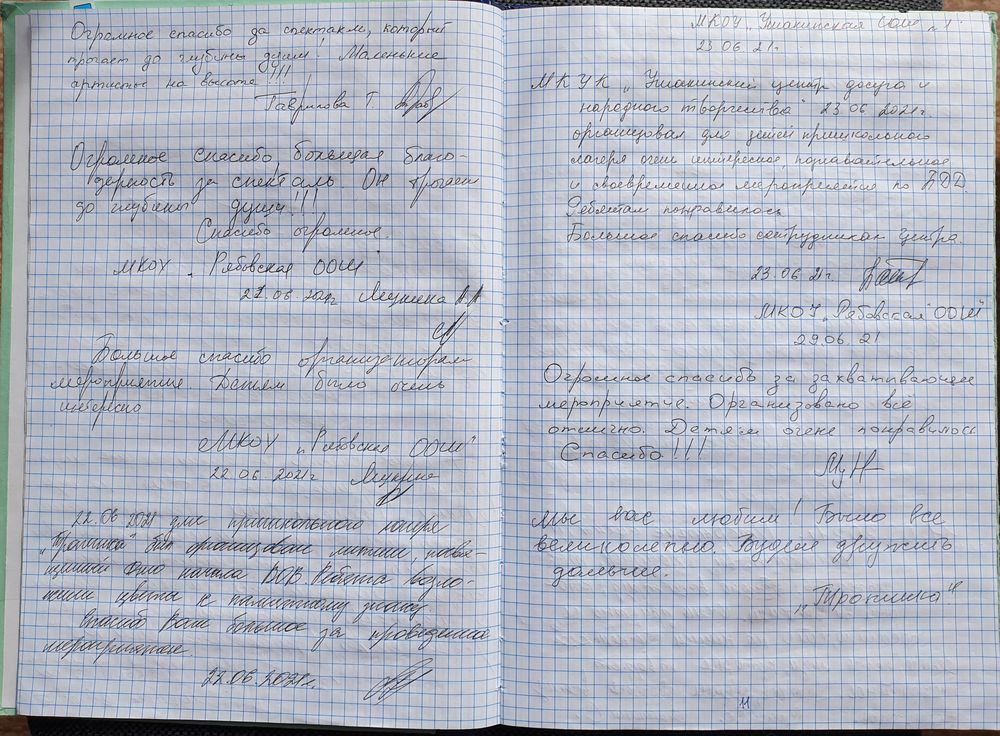 Огромное спасибо за спектакль, который
трогает до глубины души! Маленькие
артисты на высоте!!!
Гаврилова Т.
Огромное спасибо, большая благо-
дарность за спектакль. Он трогает
до глубины души!!!
Спасибо огромное.
МКОУ „Рябовская ООШ"
21.06.2021г
Большое спасибо организаторам
мероприятие Детям было очень
интересно
МКОУ „Рябовская ООШ"
22.06.2021г
22.06 2021 для пришкольного лагеря
был организован митинг, посвя-
щенный Дню начала ВОВ. Ребята возло-
жили цветы к памятному знаку
Спасибо Вам большое за проведенное
мероприятие.
22.06.2021г.
МКОУ „Ушакинская СОШ №1"
23.06.21г.
МКУК „Ушакинский центр досуга и
народного творчества" 23.06 2021г.
организовал для детей пришкольного
лагеря очень интересное, познавательное
и своевременное мероприятие по ПДД.
Ребятам понравилось
Большое спасибо сотрудникам Центра.
23.06.21г.
МКОУ „Рябовская ООШ"
29.06.21
Огромное спасибо за захватывающее
мероприятие. Организовано всё
отлично. Детям очень понравилось
Спасибо!!!
Мы вас любим! Было все
великолепно. Будем дружить
дальше.
„Тропинка"
11